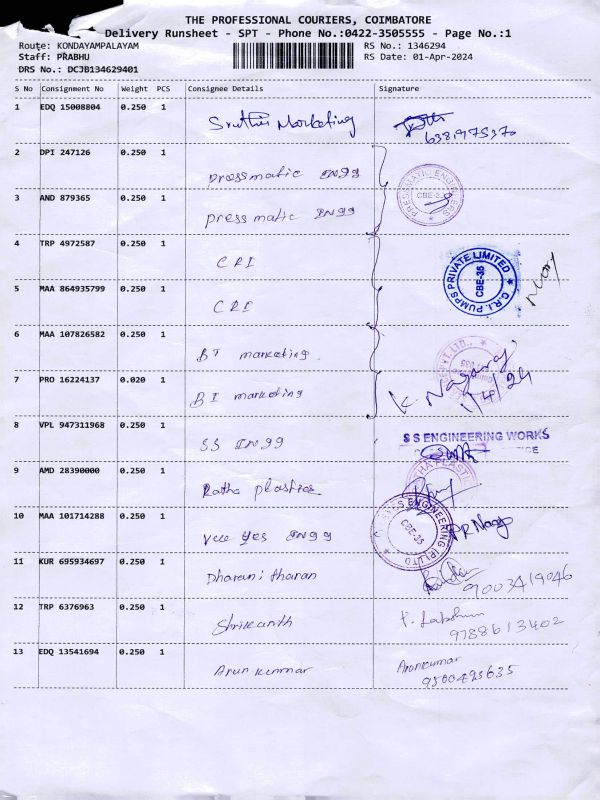 THE PROFESSIONAL COURIERS, COIMBATORE
Delivery Runsheet - SPT - Phone No.:0422-3505555 - Page No.:1
Route: KONDAYAMPALAYAM
RS No.: 1346294
Staff: PRABHU
RS Date: 01-Apr-2024
DRS No.: DCJB134629401
S No Consignment No Weight PCS Consignee Details Signature
1 EDQ 15008804 0.250 1 Sruthi Marketing
6381975370
2 DPI 247126 0.250 1 pressmatic ENGG
3 AND 879365 0.250 1 pressmatic ENGG
PRESSMATIC ENGINEERS
CBE-
4 TRP 4972587 0.250 1 CRI
C.R.I. PUMPS PRIVATE LIMITED
CBE-35
5 MAA 864935799 0.250 1 CRI
6 MAA 107826582 0.250 1 BT marketing
PVT. LTD.
7 PRO 16224137 0.020 1 BI marketing
K. Nagaraj
1/4/24
8 VPL 947311968 0.250 1 SS ENGG
S S ENGINEERING WORKS
9 AMD 28390000 0.250 1 Ratha plastics
10 MAA 101714288 0.250 1 Vee Yes ENGG
YES ENGINEERING (P) LTD
CBE-35
11 KUR 695934697 0.250 1 Dharani tharan
9003419046
12 TRP 6376963 0.250 1 Shrikanth
9788613402
13 EDQ 13541694 0.250 1 Arun kumar
Arunkumar
9500425635